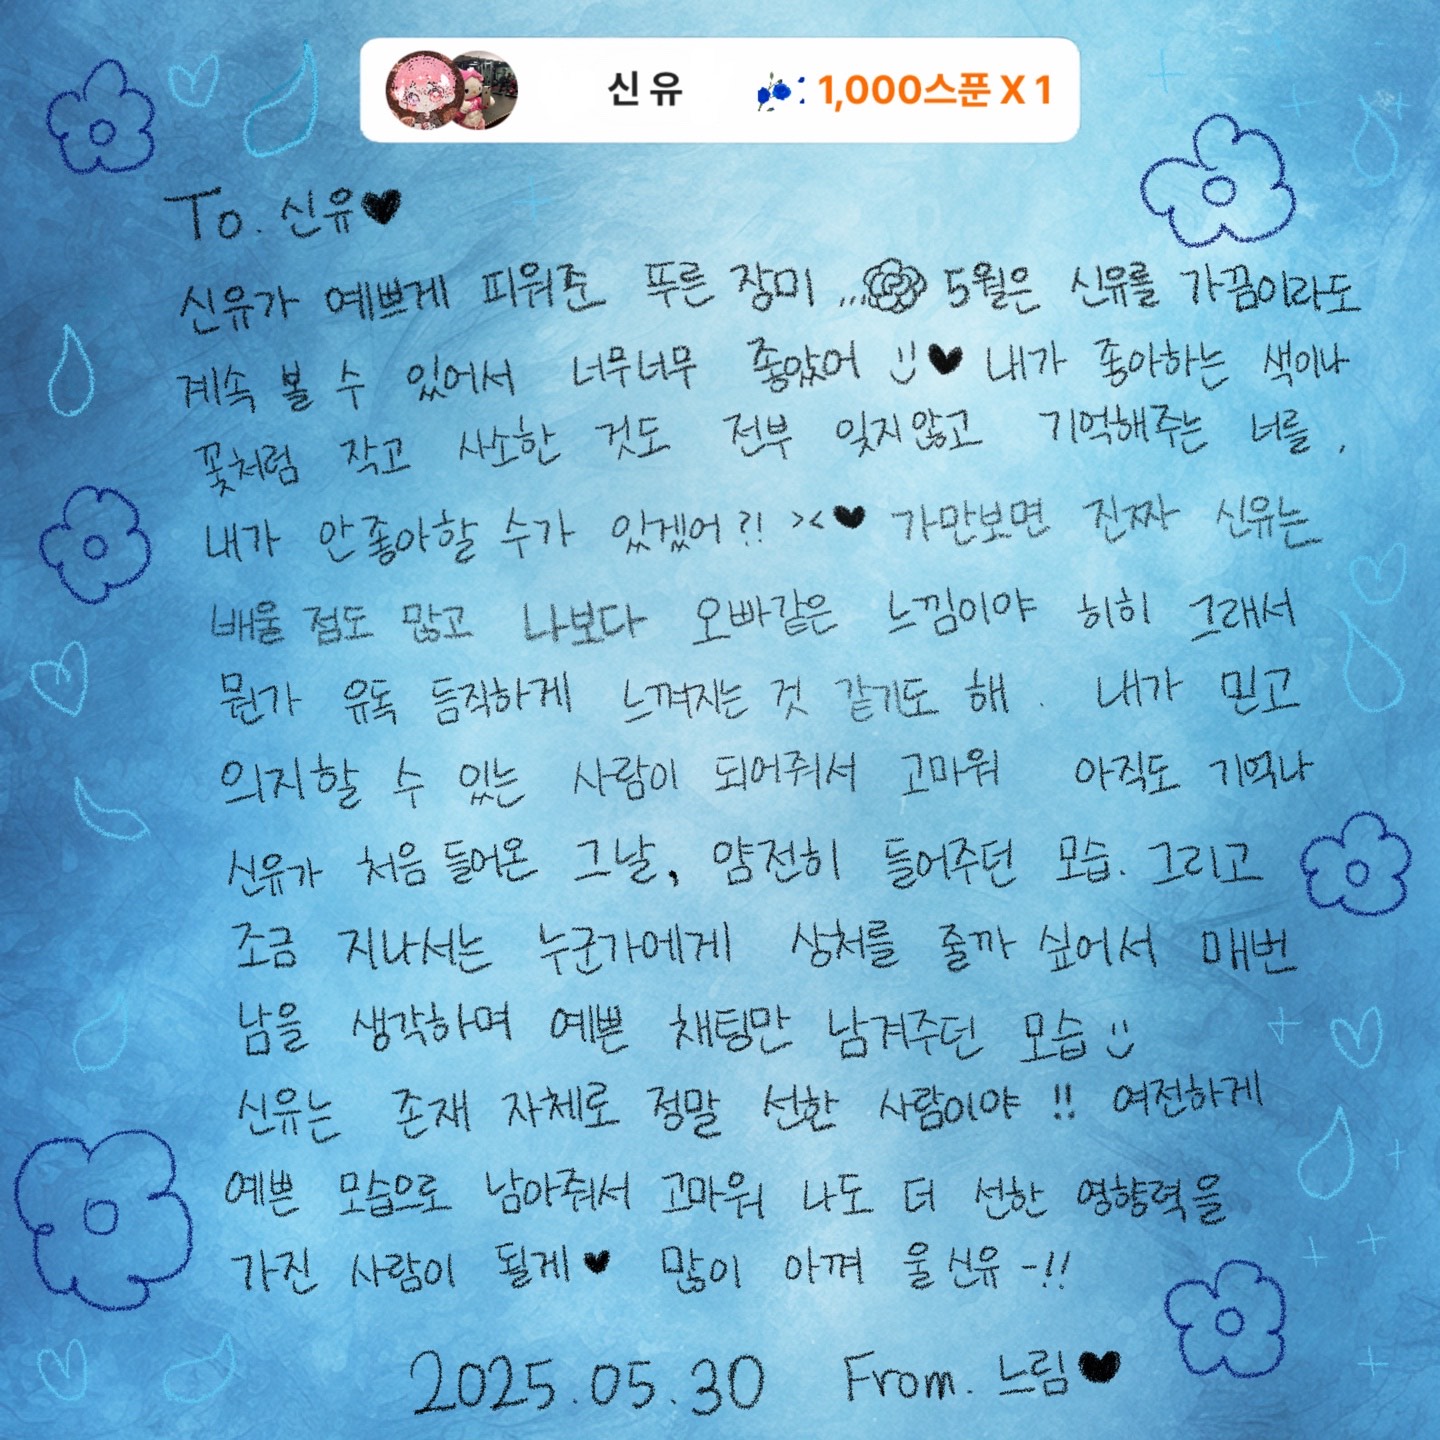 신유 1,000스푼 X 1
To. 신유♥
신유가 예쁘게 피워준 푸른 장미 ... 5월은 신유를 가끔이라도
계속 볼 수 있어서 너무너무 좋았어 :) ♥ 내가 좋아하는 색이나
꽃처럼 작고 사소한 것도 전부 잊지않고 기억해주는 너를,
내가 안좋아할 수가 있겠어?! >< ♥ 가만보면 진짜 신유는
배울 점도 많고 나보다 오빠같은 느낌이야 히히 그래서
뭔가 유독 듬직하게 느껴지는 것 같기도 해. 내가 믿고
의지할 수 있는 사람이 되어줘서 고마워 아직도 기억나
신유가 처음 들어온 그날, 얌전히 들어주던 모습. 그리고
조금 지나서는 누군가에게 상처를 줄까 싶어서 매번
남을 생각하며 예쁜 채팅만 남겨주던 모습 :)
신유는 존재 자체로 정말 선한 사람이야 !! 여전하게
예쁜 모습으로 남아줘서 고마워 나도 더 선한 영향력을
가진 사람이 될게♥ 많이 아껴 울신유-!!
2025.05.30 From. 느림♥